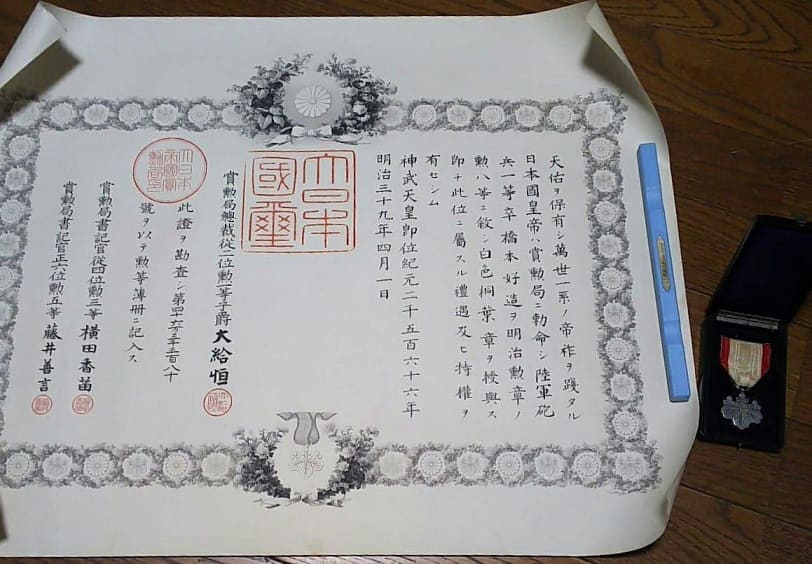 天佑ヲ保有シ萬世一系ノ帝祚ヲ踐タル
日本國皇帝ハ賞勲局ニ勅命シ陸軍砲
兵一等卒橋本好造ヲ明治勲章ノ
勲八等ニ敍シ白色桐葉章ヲ授與ス
即ナ此位ニ屬スル禮遇及ヒ特權ヲ
有セシム
神武天皇即位紀元二千五百六十六年
明治三十九年四月一日
大日本
國璽
賞勲局總裁從二位勲一等子爵大給恒
此證ヲ勘査シ第四十六万三千三百八十
號ヲ以テ勲等簿册ニ記入ス
賞勲局書記官從四位勲三等横田香苗
賞勲局書記官正六位勲五等藤井善言